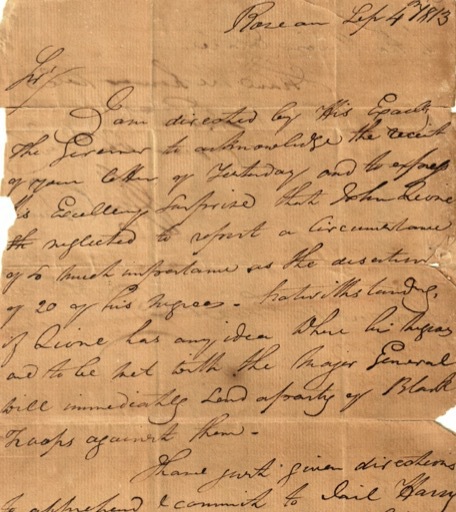 Roseau Sep 4th 1813
Sir/
I am directed by His Excelly
The Governor to acknowledge the receit
of your letter of Yesterday and to express
His Excellency Surprise that John
neglected to report a Circumstance
of so much importance as the desertion
of 20 of his Negroes - Notwithstanding,
if has any idea where his Negroes
are to be met with the Major General
will immediately Send a party of Black
Troops against them -
I have just given directions
to apprehend & commit to Jail Harry